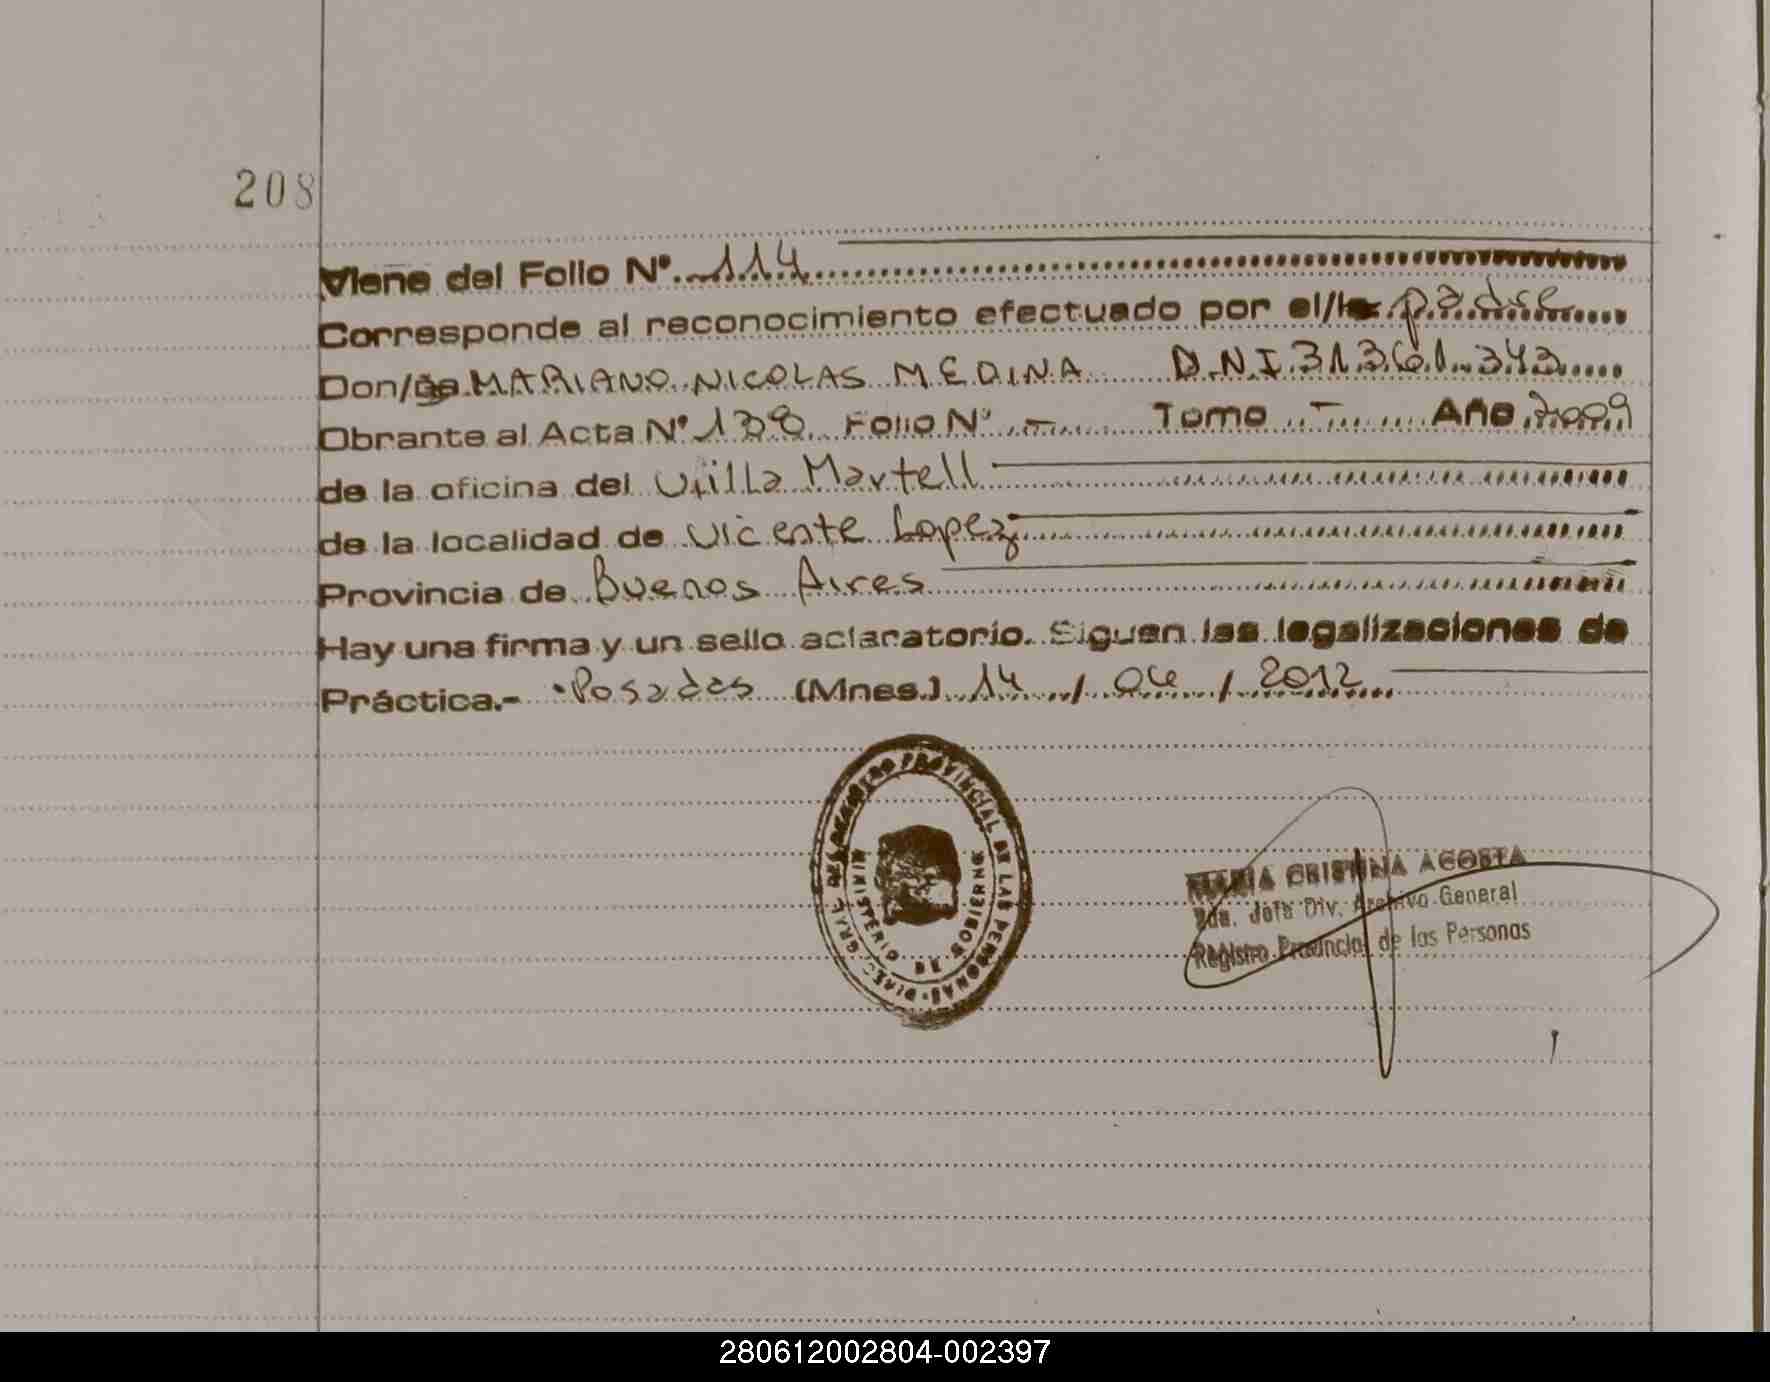 208
Viene del Folio Nº 114
Corresponde al reconocimiento efectuado por el/la padre
Don/ña MARIANO NICOLAS MEDINA D.N.I 31.361.343
Obrante al Acta Nº 138 Folio Nº - Tomo - Año 2009
de la oficina del Villa Martell
de la localidad de Vicente Lopez
Provincia de Buenos Aires
Hay una firma y un sello aclaratorio. Siguen las legalizaciones de
Práctica.- Posadas (Mnes.) 14 / 04 / 2012
REGISTRO PROVINCIAL DE LAS PERSONAS
MINISTERIO DE GOBIERNO
MARIA CRISTINA ACOSTA
2da. Jefa Div. Archivo General
Registro Provincial de las Personas
280612002804-002397